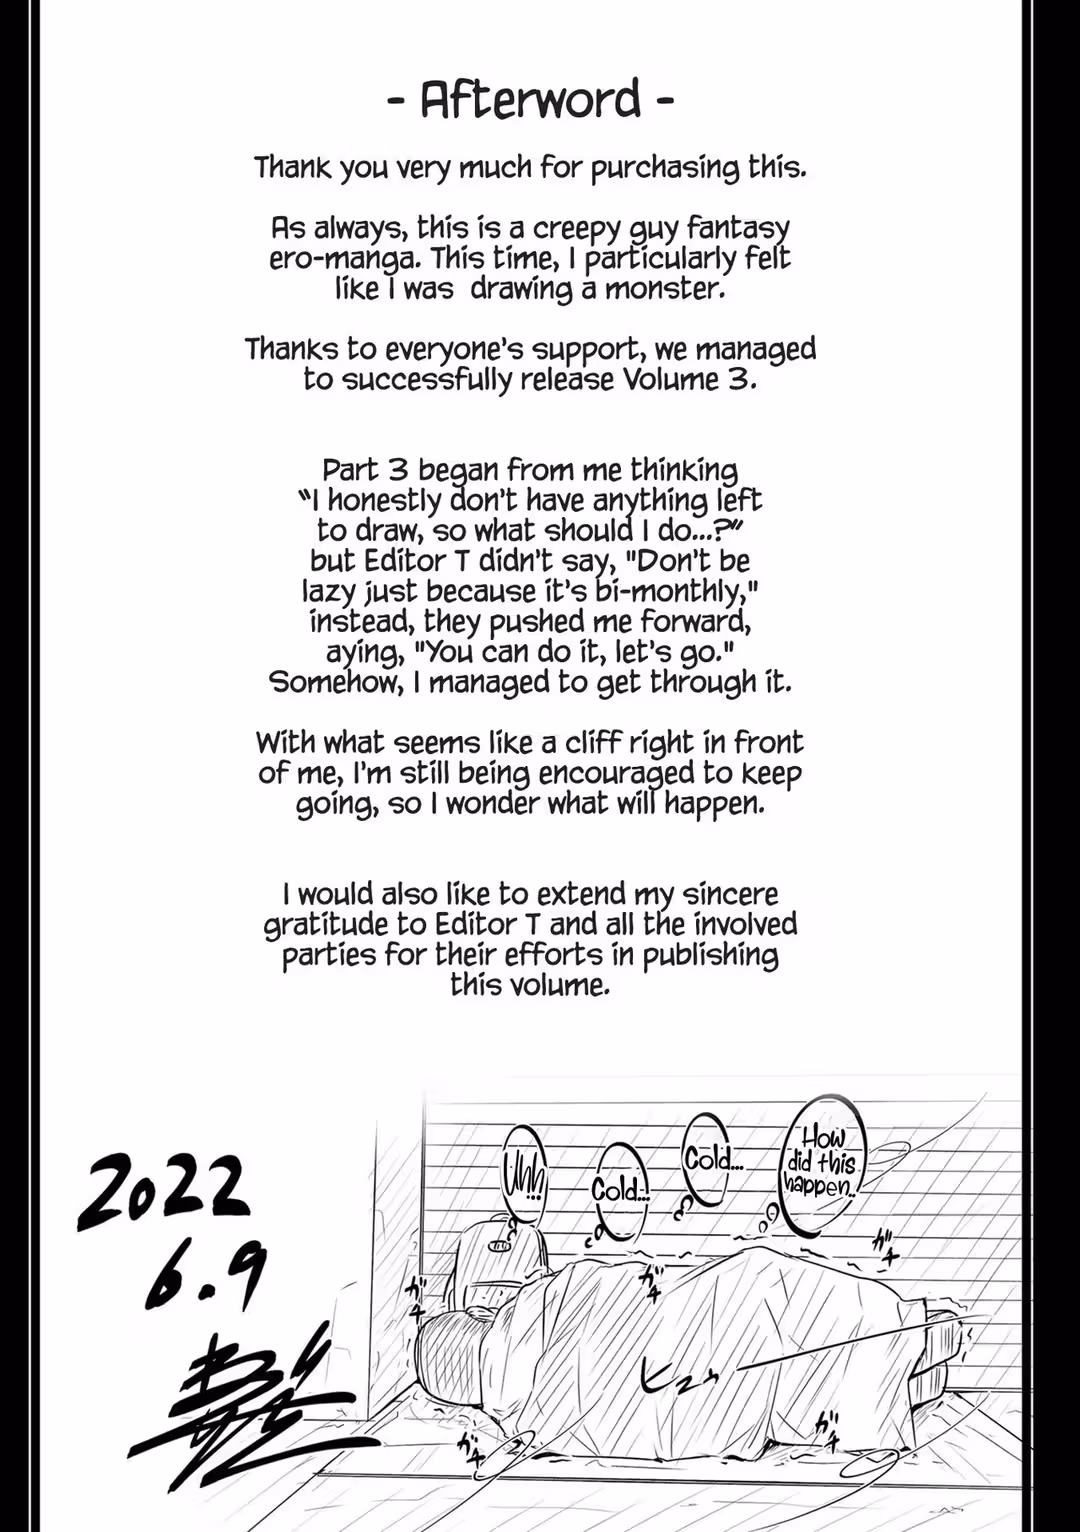 - Afterword -
Thank you very much for purchasing this.
As always, this is a creepy guy fantasy
ero-manga. This time, I particularly felt
like I was drawing a monster.
Thanks to everyone's support, we managed
to successfully release Volume 3.
Part 3 began from me thinking
"I honestly don't have anything left
to draw, so what should I do...?"
but Editor T didn't say, "Don't be
lazy just because it's bi-monthly,"
instead, they pushed me forward,
aying, "You can do it, let's go."
Somehow, I managed to get through it.
With what seems like a cliff right in front
of me, I'm still being encouraged to keep
going, so I wonder what will happen.
I would also like to extend my sincere
gratitude to Editor T and all the involved
parties for their efforts in publishing
this volume.
Uhh
...
Cold...
Cold...
How
did this
happen..
2022
6.9
ガチ
ガチ
ガチ
ヒュゥ
ガチ
ガチ